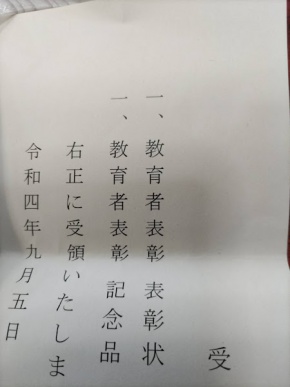 受
一、教育者表彰 表彰状
一、教育者表彰 記念品
右正に受領いたしま
令和四年九月五日